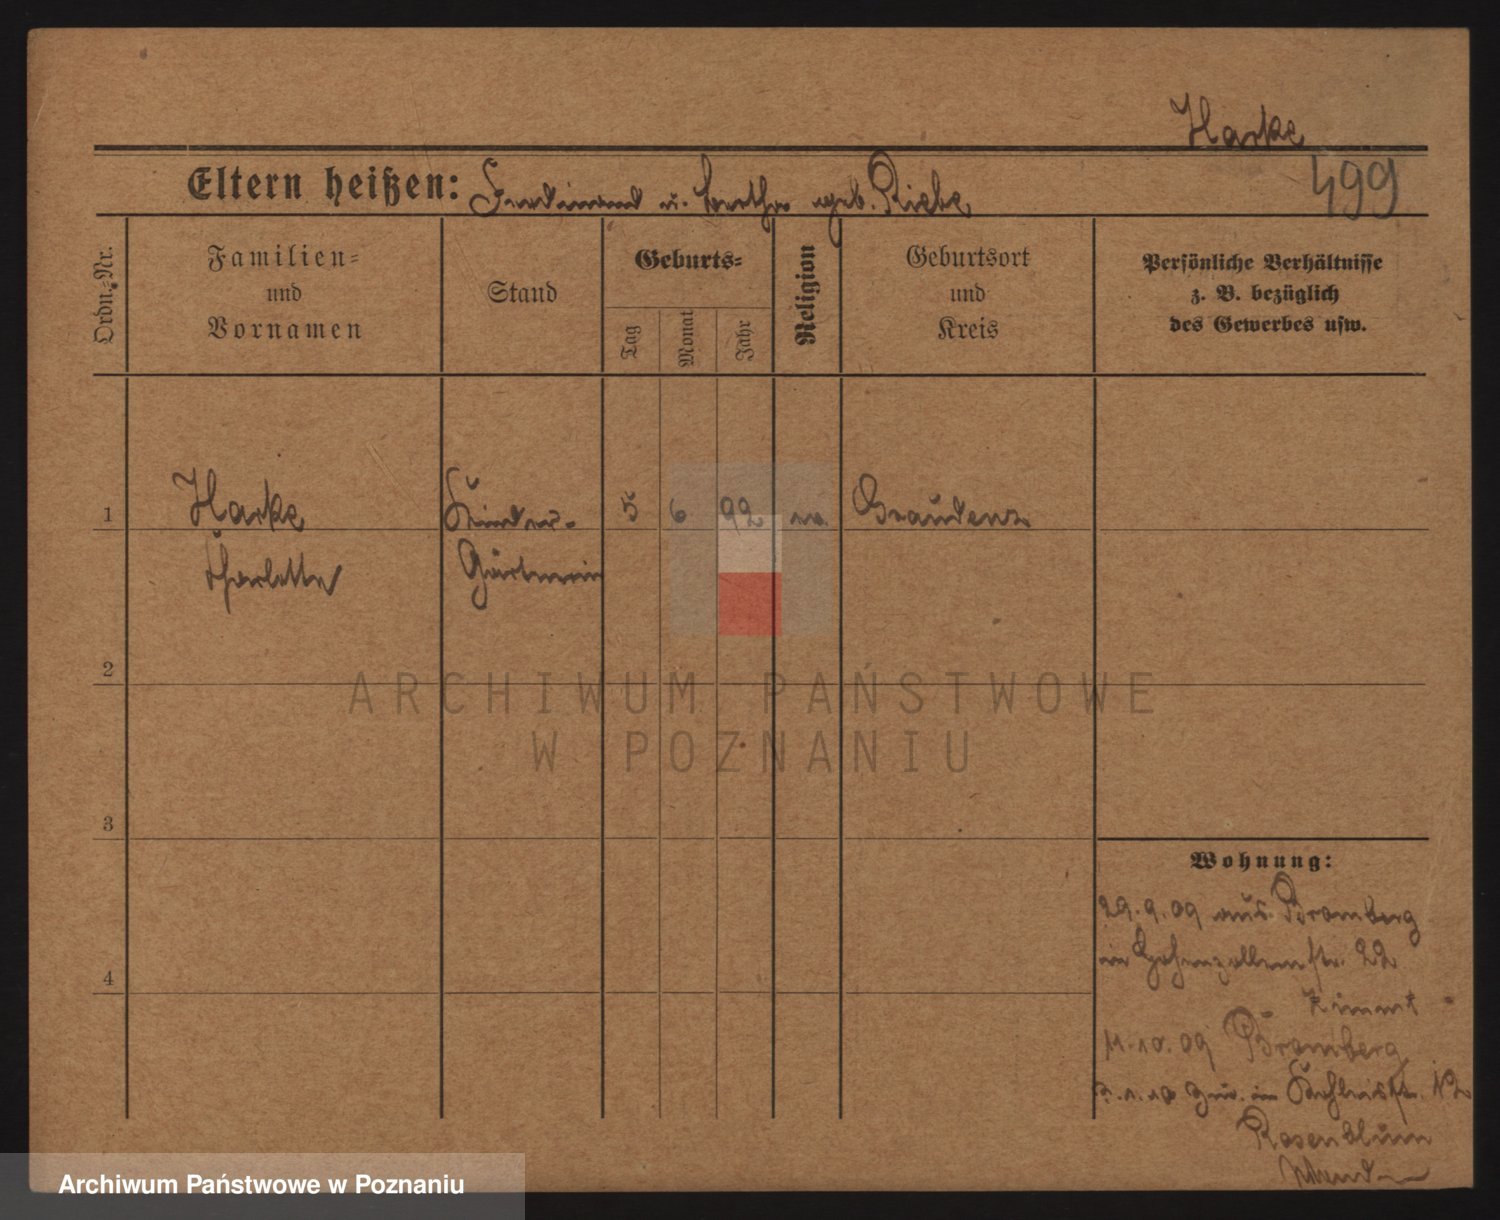 Harke
499
Eltern heißen: Ferdinand u. Bertha geb. Riebe
Ordn.-Nr.
Familien-
und
Vornamen
Stand
Geburts-
Tag
Monat
Jahr
Religion
Geburtsort
und
Kreis
Persönliche Verhältnisse
z. B. bezüglich
des Gewerbes usw.
1
Harke
Charlotte
Kinder-
Gärtnerin
5
6
92
ev.
Graudenz
2
ARCHIWUM PAŃSTWOWE
W POZNANIU
3
Wohnung:
29.9.09 aus Bromberg
in Hohenzollernstr. 22
4
11.10.09 Bromberg
12
Rosenblum
Archiwum Państwowe w Poznaniu